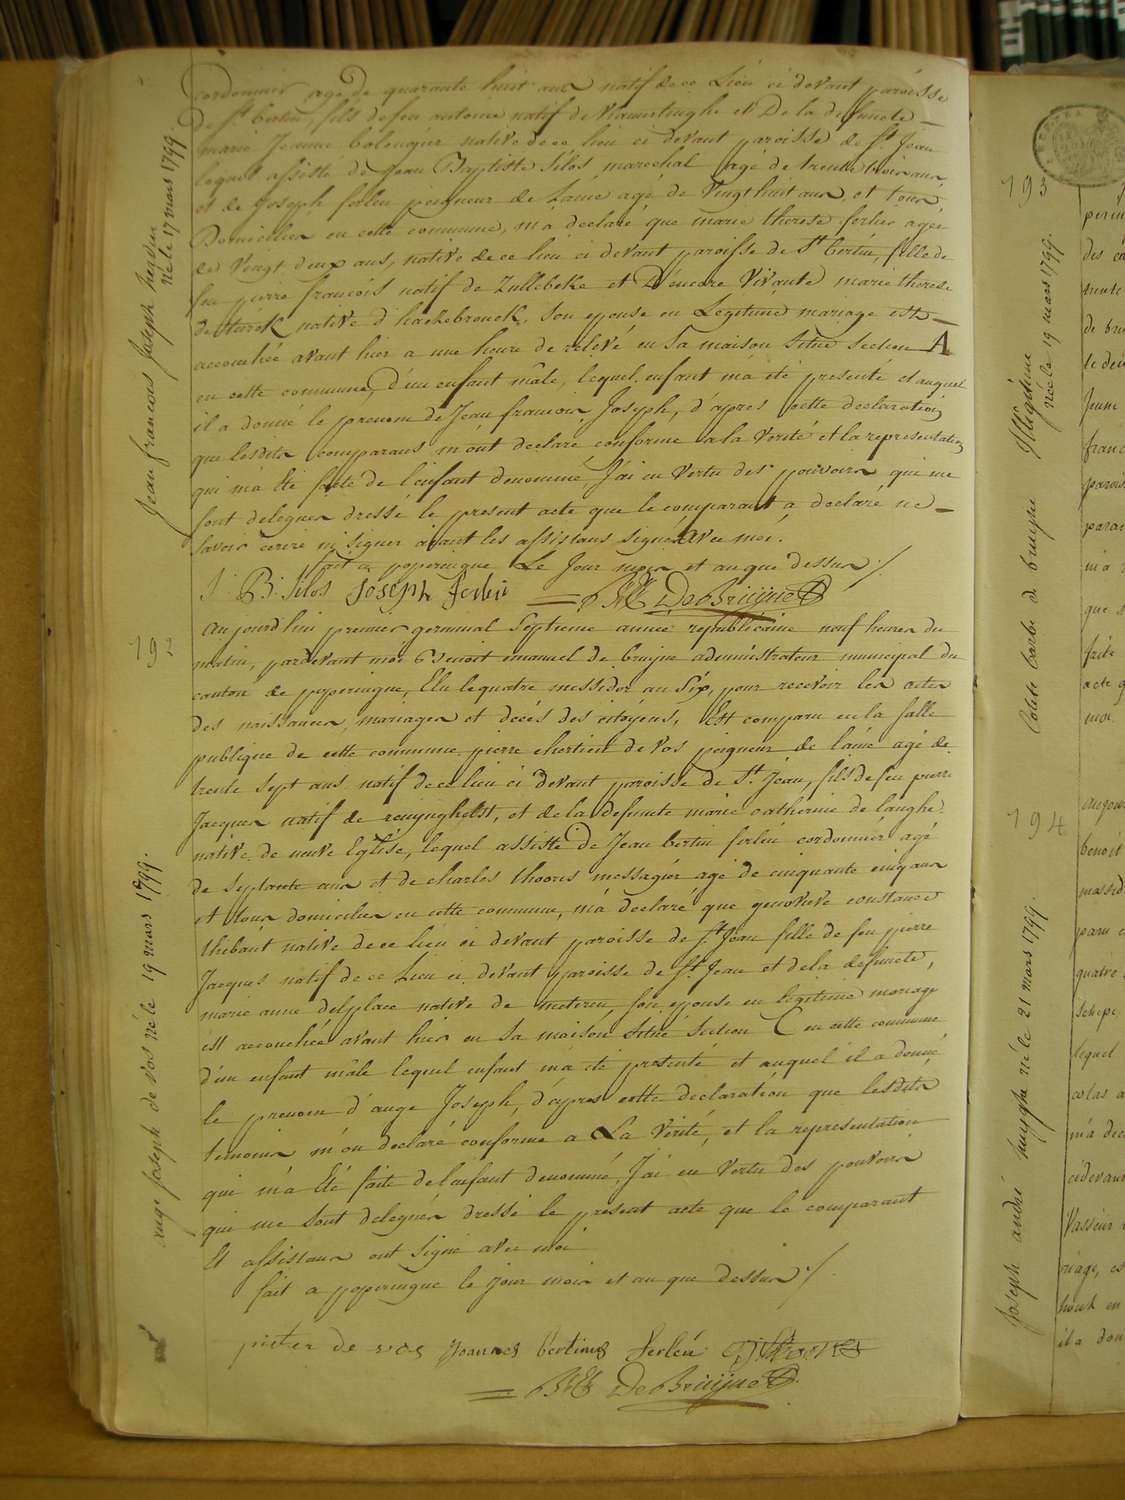 cordonnier agé de quarante huit ans natif de ce Lieu ci devant paroisse
de St bertin, fils de feu antoine natif de vlamertinghe et De la defuncte
marie Jeanne native de ce lieu ci devant paroisse de St Jean
lequel assisté de Jean Baptiste Silos marechal agé de trente trois ans,
et de Joseph ferlin peigneur de Laine agé de Vingt huit ans, et tous
Domiciliés en cette commune, m'a declaré que marie therese ferlier agée
de Vingt deux ans, native de ce lieu ci devant paroisse de St bertin, fille de
feu pierre francois natif de Zillebeke et D'encore Vivante marie therese
native d'hazebrouck, son epouse en Legitime mariage est
accouchée avant hier a une heure de relevé en sa maison Situé Section A
en cette commune, d'un enfant mâle, lequel enfant m'a été presenté et auquel
il a donné le prenom de Jean francois Joseph, d'apres cette declaration
que lesdits comparans m'ont declaré conforme a la Verité et la representation
qui m'a été faite de l'enfant denommé, J'ai en Vertu des pouvoirs qui me
sont delegués dressé le present acte que le comparant a declaré ne
savoir ecrire ni signer aiant les assistans signé avec moi.
fait a poperingue Le Jour mois et an que dessus ./.
J: B: Silos Joseph Ferlin B: E: DeBruijne
192
aujourd'hui premier germinal Septieme année republicaine neuf heures du
matin, pardevant moi Benoit emanuel de bruijne administrateur municipal du
canton de poperingue, Elu le quatre messidor an Six, pour recevoir les actes
des naissances, mariages et decés des citoyens, Est comparu en la salle
publique de cette commune pierre chretien de vos peigneur de laine agé de
trente sept ans natif de ce lieu ci devant paroisse de St Jean, fils de feu pierre
Jacques natif de reninghelst, et de la defuncte marie catherine de langhe
native de neuve Eglise, lequel assisté de Jean bertin ferlin cordonnier agé
de Septante ans et de charles thoors messagér agé de cinquante cinq ans
et tous domiciliés en cette commune, m'a declaré que genoveve constance
thibaut native de ce lieu ci devant paroisse de St Jean fille de feu pierre
Jacques natif de ce Lieu ci devant paroisse de St Jean et de la defuncte,
marie anne delplace native de meteren, son epouse en legitime mariage
est accouchée avant hier en sa maison Situé Section C en cette commune
d'un enfant mâle lequel enfant m'a été presenté et auquel il a donné
le prenom d'ange Joseph, d'apres cette declaration que lesdits
temoins m'on declaré conforme a La Verité, et la representation
qui m'a été faite de l'enfant denommé, J'ai en Vertu des pouvoirs
qui me sont delegués dressé le present acte que le comparant
et assistans ont signé avec moi
fait a poperingue le jour mois et an que dessus ./.
pieter de vos Joannes bertinus Ferlin
B: E: DeBruijne
Jean francois Joseph
né le 17 mars 1799
ange Joseph de vos né le 19 mars 1799.
193
Illegitime
Colete barbe de bruijne née le 19 mars 1799.
194
Joseph andré né le 21 mars 1799.
des
de
que
faite
acte
moi.
aujour
benoit
messid
quatre
lequel
m'a dec
cidevant
Vasseur
riage, es
il a don